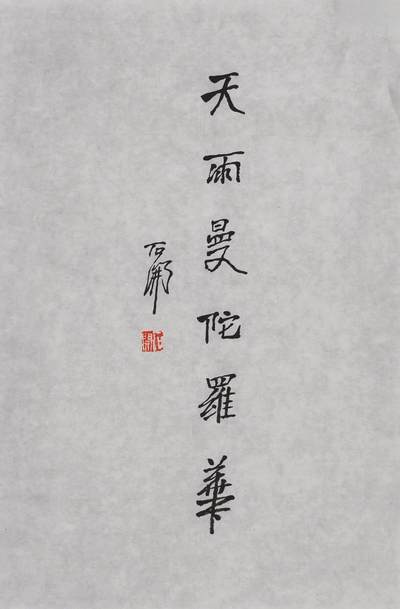 天雨曼陀羅華
石開